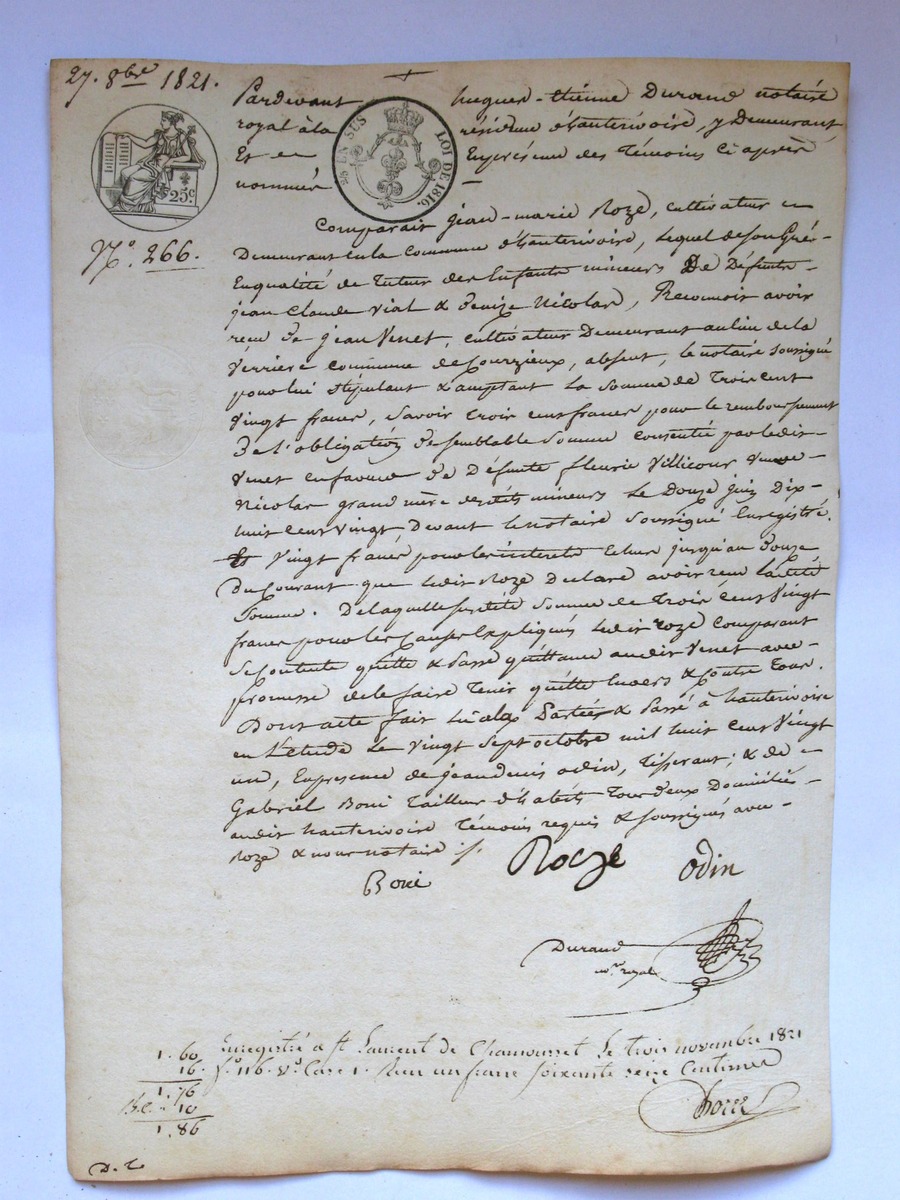 27. 8bre 1821.
Pardevant hugues-étienne Durand notaire
royal à la résidence d'hauterivoire, y Demeurant
Et en Enpresence des Temoins Ci après
nommés
EN SUS LOI DE 1816.
25c.
N.o 266.
Comparait Jean-marie Roze, cultivateur
Demeurant en la Commune d'hauterivoire, lequel de son Gré
Enqualité de Tuteur des Enfants mineurs De Défunts
jean Claude vial & denize Nicolas, Reconnoit avoir
recu de jean Venet, cultivateur Demeurant au lieu de la
verriere commune de Courzieux, absent, le notaire soussigné
pour lui stipulant & acceptant la somme de Trois cent
vingt francs, savoir trois cens francs pour le remboursement
de l'obligation de semblable somme consentie par ledit
Venet en faveur de Défunte fleurie Villicour veuve
Nicolas grand mère desdits mineurs le Douze juin Dix
huit cens vingt, Devant le notaire soussigné Enregistré.
Et vingt francs pour les interets Echus jusqu'au Douze
Du Courant que ledit Roze Declare avoir recu ladite
Somme. De laquelle susdite somme de Trois cens vingt
francs pour les Causes Expliqués ledit roze comparant
Se Contente quitte & passe quittance audit Venet avec
promesse de le faire Tenir quitte Envers & contre Tous.
Dont acte fait & Passé à hauterivoire
en L'etude Le vingt Sept octobre mil huit cens vingt
un, Enpresence de jean denis odin, Tisserant; & de
Gabriel Boni Tailleur d'habits Tous deux Domiciliés
audit hauterivoire Témoins requis & soussignés avec
Roze & nous notaire
Boni Rooze odin
Durand
nore royal
Enregistré a st Laurent de Chamousset Le trois novembre 1821
fo. 116. vo. Case 1. Recu un franc soixante seize Centimes
1. 60
16.
1. 76
10
1. 86
D. T.